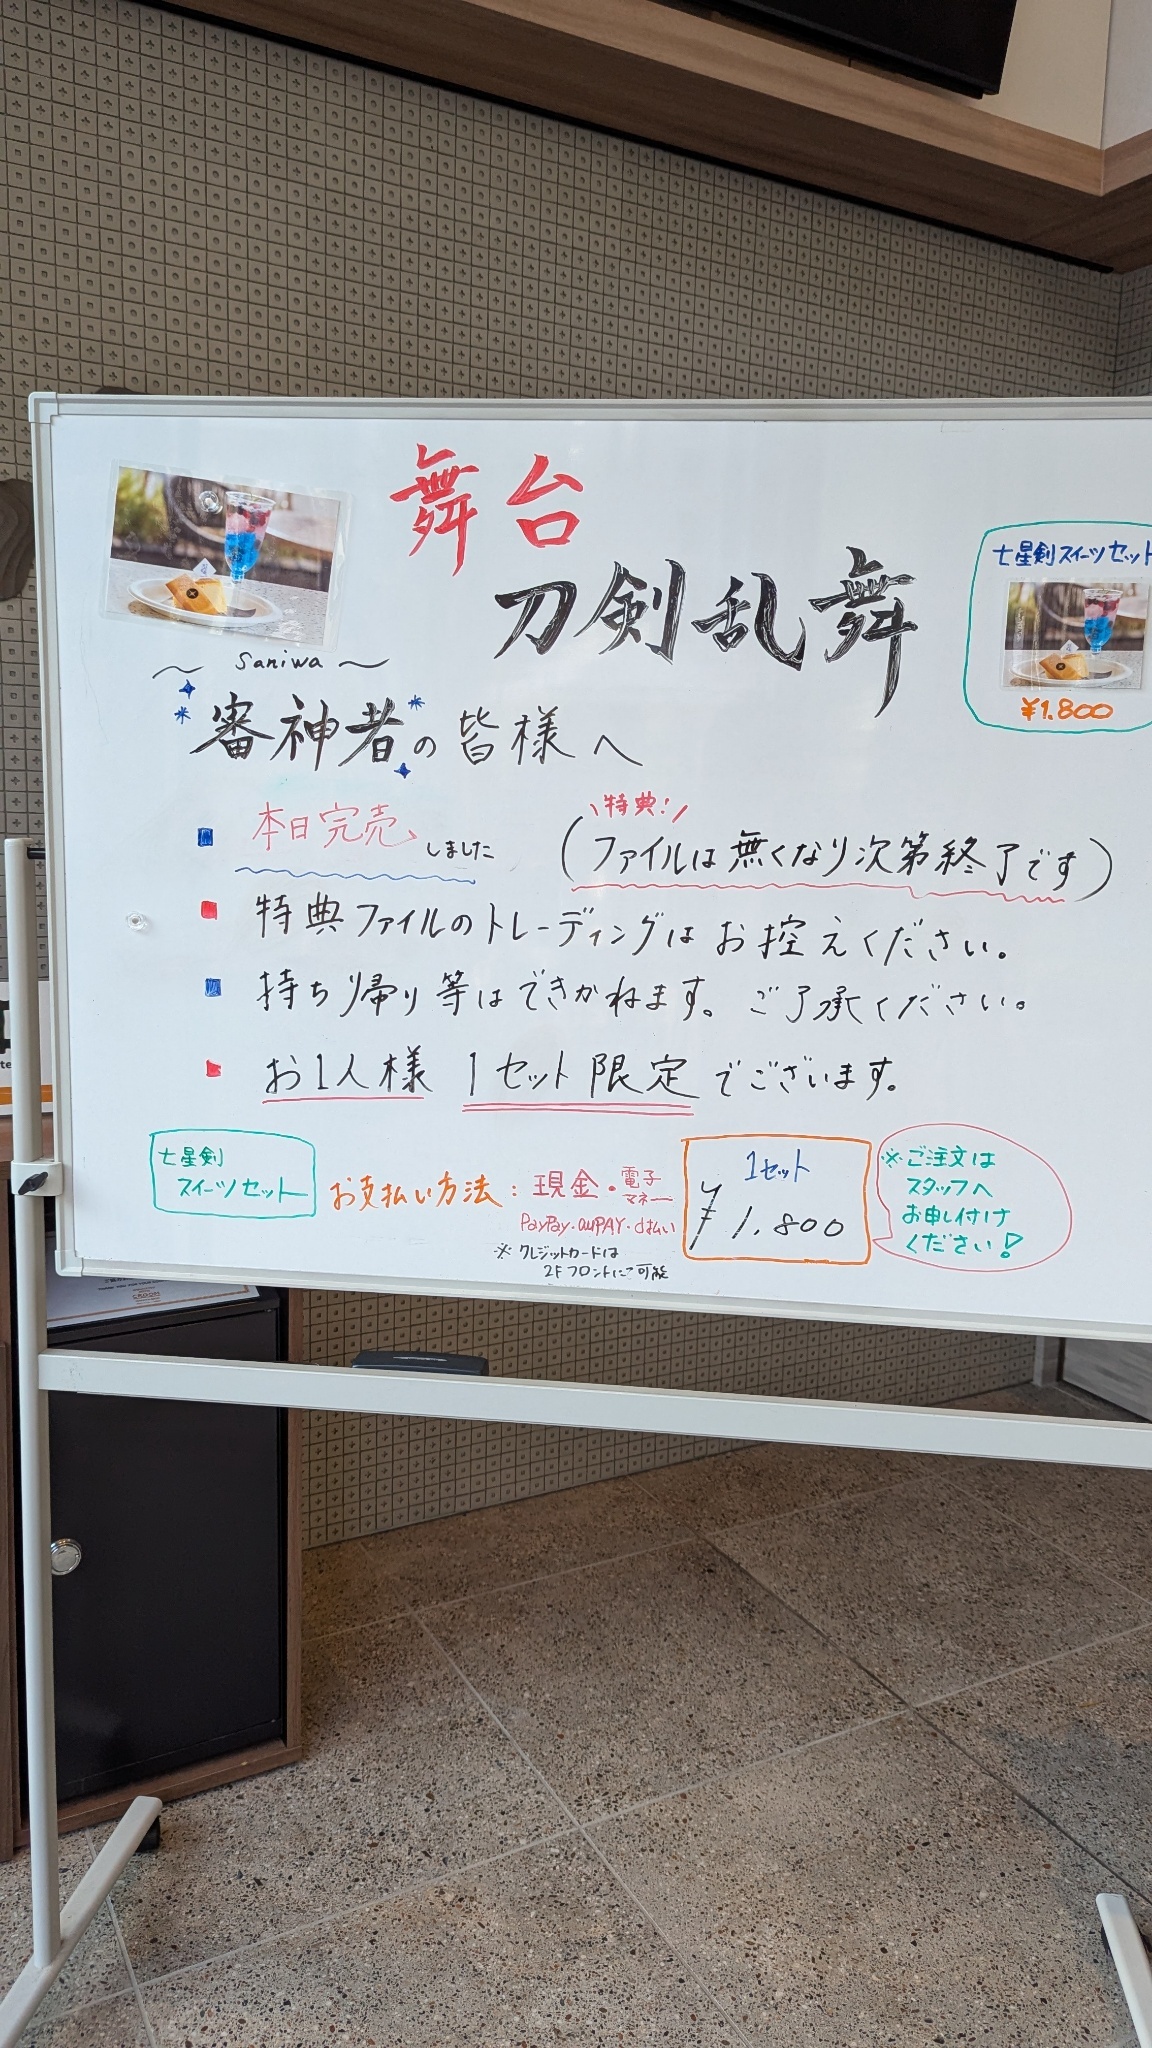 舞台
刀剣乱舞
七星剣スイーツセット
¥1.800
～ saniwa ～
審神者の皆様へ
■ 本日完売しました
\特典!/
(ファイルは無くなり次第終了です)
■ 特典ファイルのトレーディングはお控えください。
■ 持ち帰り等はできかねます。ご了承ください。
■ お1人様 1セット限定でございます。
七星剣
スイーツセット
お支払い方法：現金・電子マネー
PayPay・auPAY・d払い
※クレジットカードは
2Fフロントにて可能
1セット
¥1.800
※ご注文は
スタッフへ
お申し付け
ください!